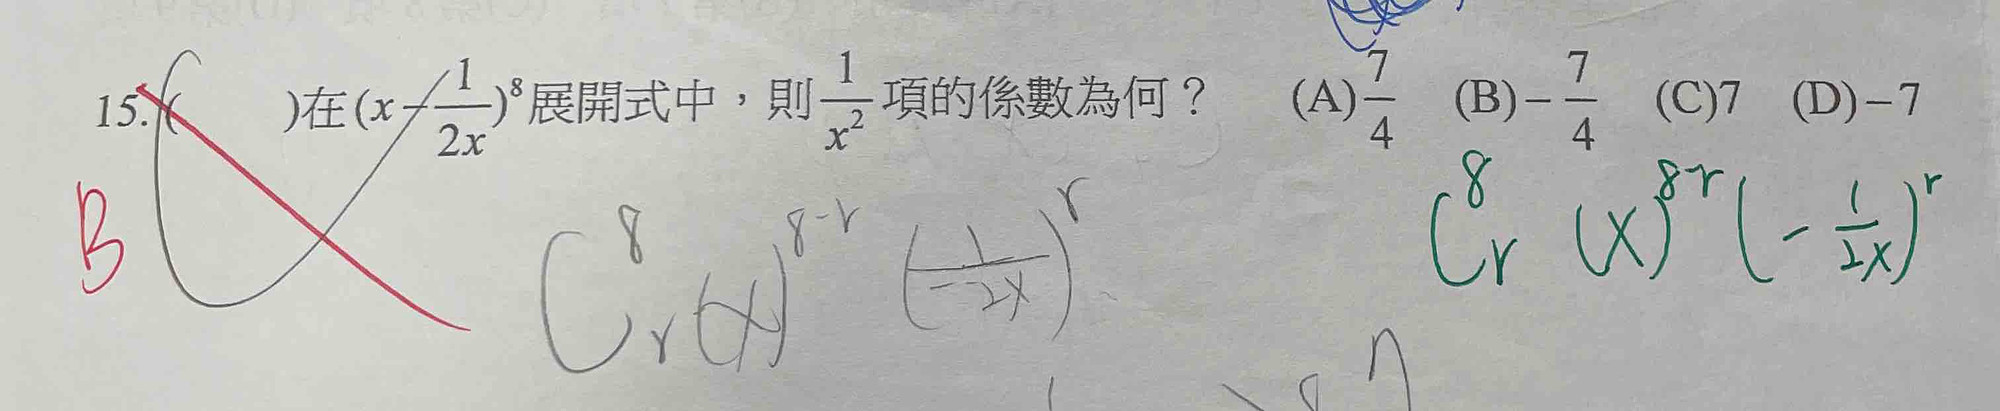 15.( )在(x-\frac{1}{2x})^8展開式中，則\frac{1}{x^2}項的係數為何？ (A)\frac{7}{4} (B)-\frac{7}{4} (C)7 (D)-7
B
C^8_r (x)^{8-r} (\frac{1}{-2x})^r
C^8_r (x)^{8-r} (-\frac{1}{2x})^r